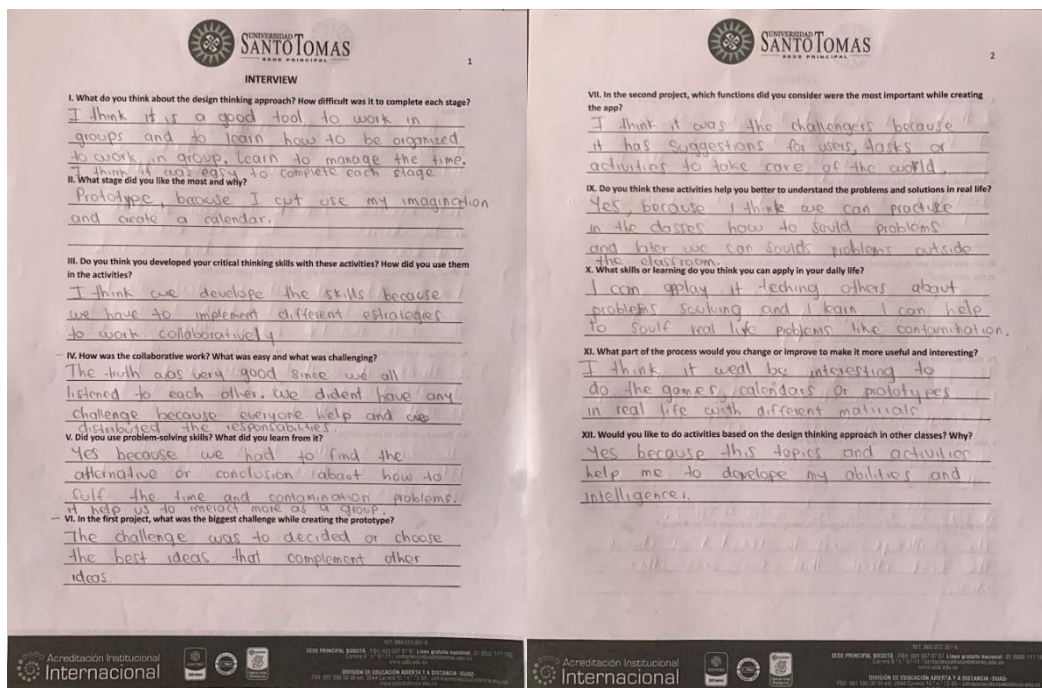 UNIVERSIDAD
SANTO TOMAS
SEDE PRINCIPAL
1
INTERVIEW
I. What do you think about the design thinking approach? How difficult was it to complete each stage?
I think it is a good tool to work in
groups and to learn how to be organized
to work in group, learn to manage the time.
I think it was easy to complete each stage
II. What stage did you like the most and why?
Prototype, because I cut use my imagination
and create a calendar.
III. Do you think you developed your critical thinking skills with these activities? How did you use them
in the activities?
I think we develope the skills because
we have to implement different estrategies
to work collaboratively
IV. How was the collaborative work? What was easy and what was challenging?
The truth was very good since we all
listened to each other. We dident have any
challenge because everyone help and we
distributed the responsabilities.
V. Did you use problem-solving skills? What did you learn from it?
Yes because we had to find the
alternative or conclusion about how to
sulf the time and contamination problems.
it help us to interact more as a group.
VI. In the first project, what was the biggest challenge while creating the prototype?
The challenge was to decided or choose
the best ideas that complement other
ideas.
Acreditación Institucional
Internacional
UNIVERSIDAD
SANTO TOMAS
SEDE PRINCIPAL
2
VII. In the second project, which functions did you consider were the most important while creating
the app?
I think it was the challengers because
it has suggestions for users, tasks or
activities to take care of the world.
IX. Do you think these activities help you better to understand the problems and solutions in real life?
Yes, because I think we can practise
in the classes how to sould problems
and later we can soulds problems outside
the classroom.
X. What skills or learning do you think you can apply in your daily life?
I can applay it teching others about
problems soulving and I learn I can help
to soulf real life problems like contamination.
XI. What part of the process would you change or improve to make it more useful and interesting?
I think it weal be interesting to
do the games, calendars or prototypes
in real life with different materials
XII. Would you like to do activities based on the design thinking approach in other classes? Why?
Yes because this topics and activities
help me to develope my abilities and
intelligences.
Acreditación Institucional
Internacional